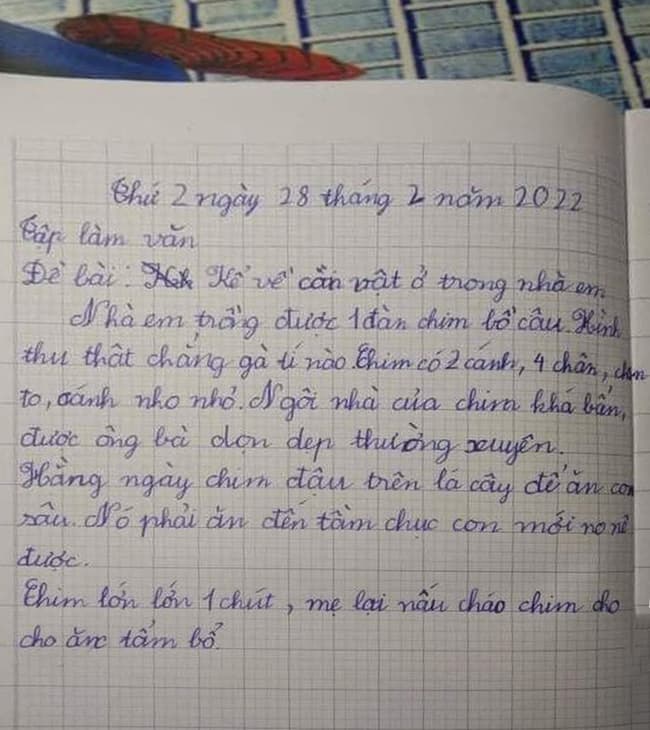 Thứ 2 ngày 28 tháng 2 năm 2022
Tập làm văn
Đề bài: Kể về cần vật ở trong nhà em
Nhà em trồng được 1 đàn chim bồ câu. Hình
thu thật chẳng gà tí nào. Chim có 2 cánh, 4 chân, chân
to, cánh nho nhỏ. Ngôi nhà của chim khá bẩn,
được ông bà dọn dẹp thường xuyên.
Hằng ngày chim đậu trên lá cây để ăn con
sâu. Nó phải ăn đến tầm chục con mới no nê
được.
Chim lớn lớn 1 chút, mẹ lại nấu cháo chim cho
cho ăn tẩm bổ